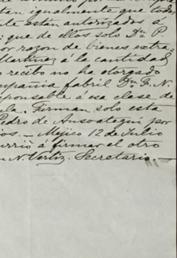 bian, igualmente que todo
te están autorizados á
: que de ellos solo Dn. P
or razon de bienes estra
Martinez á la cantidad
o recibo no ha otorgado
ompañia fabril Dn. F. N.
sponsable á esa clase de
la. Firman solo esta
Pedro de Ansoategui por
ios. — Mejico 12 de Julio
urrió á firmar el otro
n. N. Vertiz. Secretario.—